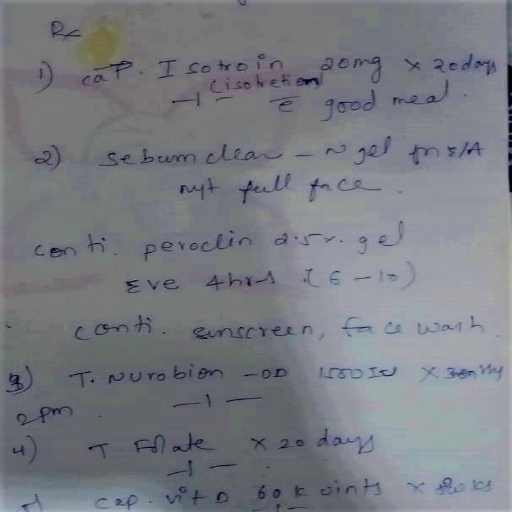 Rx
1) cap. Isotroin 20mg x 20days
(isotretion)
—1— c good meal.
2) sebumclear — N gel
nyt full face.
conti. peroclin 2.5%. gel
Eve 4hrs (6 – 10)
conti. sunscreen, face wash
3) T. Nurobion – OD 1500 IU x
2pm. —1—
4) T Folate x 20 days
—1—
cap. vit D 60k